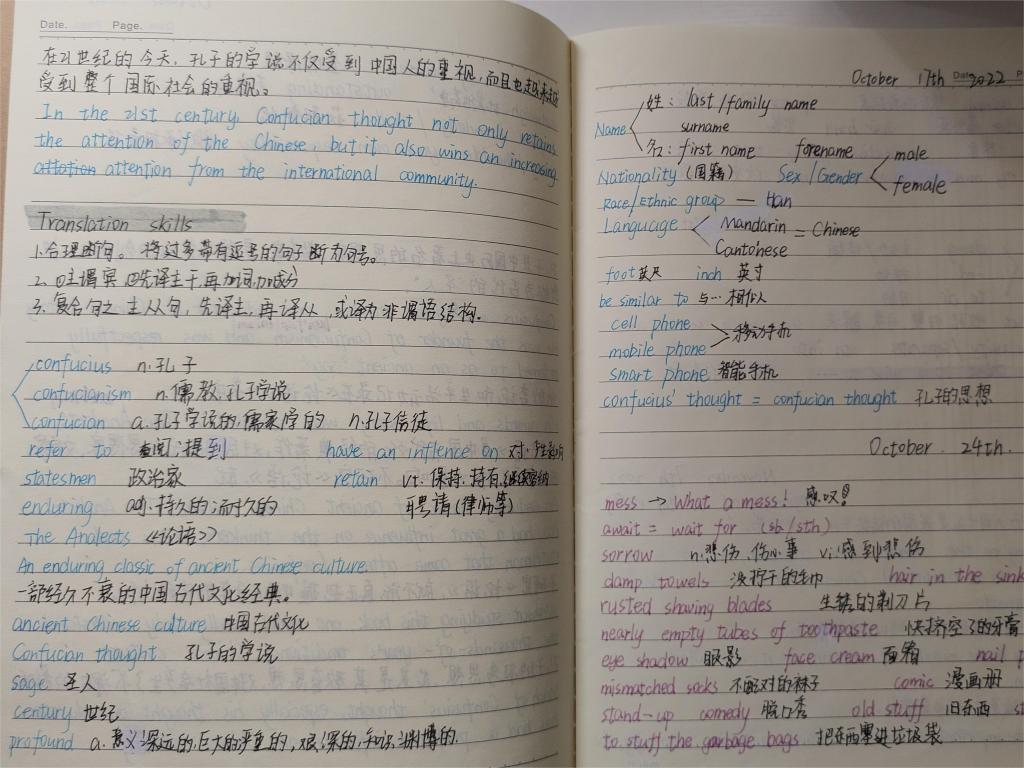 Date. Page.
在21世纪的今天，孔子的学说不仅受到中国人的重视，而且也越来越
受到整个国际社会的重视。
In the 21st century, Confucian thought not only retains
the attention of the Chinese, but it also wins an increasing
attention from the international community.
Translation skills
1.合理断句。将过多带有逗号的句子断为句号。
2. 主谓宾 先译主干,再加词加成分
3. 复合句之主从句，先译主，再译从，或译为非谓语结构。
confucius n.孔子
confucianism n.儒教,孔子学说
confucian a.孔子学说的,儒家学的 n.孔子信徒
refer to 查阅;提到 have an inflence on 对…产生影响
statesmen 政治家 retain vt.保持.持有.继续容纳
enduring adj.持久的;耐久的 聘请(律师等)
The Analects 《论语》
An enduring classic of ancient Chinese culture.
一部经久不衰的中国古代文化经典。
ancient Chinese culture 中国古代文化
Confucian thought 孔子的学说
sage 圣人
century 世纪
profound a.意义深远的,巨大的,严重的,艰深的,知识渊博的.
October 17th Date 2022
姓: last/family name
Name surname
名: first name forename male
Nationality (国籍) Sex/Gender
female
Race/Ethnic group — Han
Language Mandarin = Chinese
Cantonese
foot 英尺 inch 英寸
be similar to 与…相似
cell phone
移动手机
mobile phone
smart phone 智能手机
confucius' thought = confucian thought 孔子的思想
October 24th.
mess → What a mess! 感叹
await = wait for (sb/sth)
sorrow n.悲伤.伤心事 vi.感到悲伤
damp towels 没拧干的毛巾 hair in the sink
rusted shaving blades 生锈的剃刀片
nearly empty tubes of toothpaste 快挤空了的牙膏
eye shadow 眼影 face cream 面霜 nail p
mismatched socks 不配对的袜子 comic 漫画册
stand-up comedy 脱口秀 old stuff 旧东西
to stuff the garbage bags 把东西塞进垃圾袋